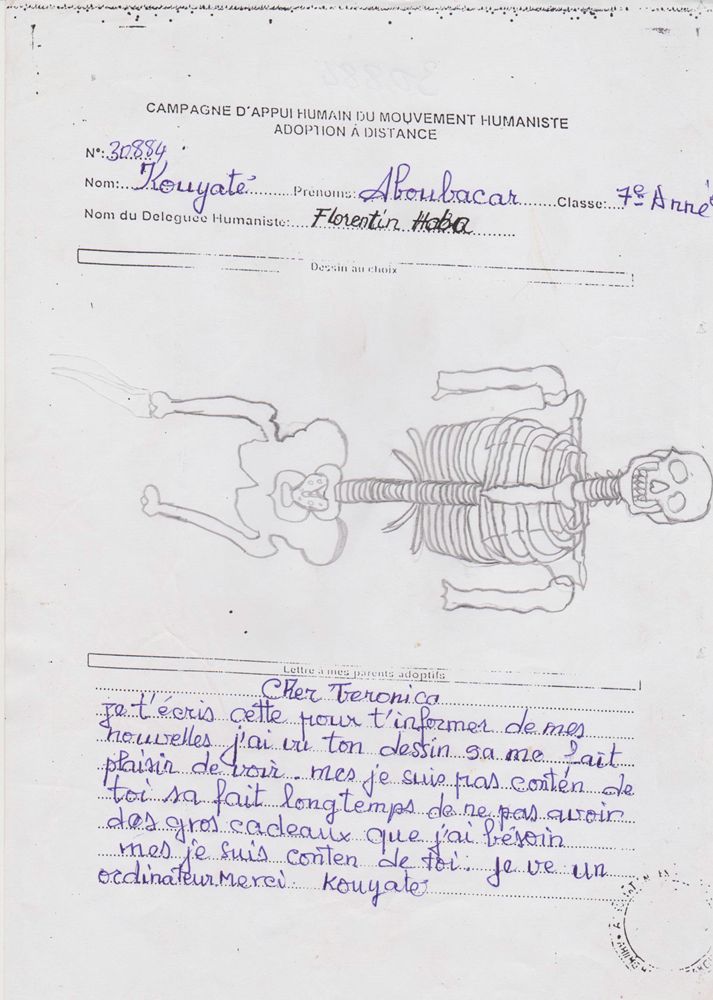 CAMPAGNE D'APPUI HUMAIN DU MOUVEMENT HUMANISTE
ADOPTION À DISTANCE
N°: 30884
Nom: Kouyaté Prénoms: Aboubacar Classe: 7e Anné
Nom du Deleguée Humaniste: Florentin Haba
Dessin au choix
Lettre à mes parents adoptifs
Cher Veronica
je t'écris cette pour t'informer de mes
nouvelles j'ai vu ton dessin sa me fait
plaisir de voir. mes je suis pas contén de
toi sa fait longtemps de ne pas avoir
des gros cadeaux que j'ai bésoin
mes je suis conten de toi. je ve un
ordinateur Merci Kouyaté